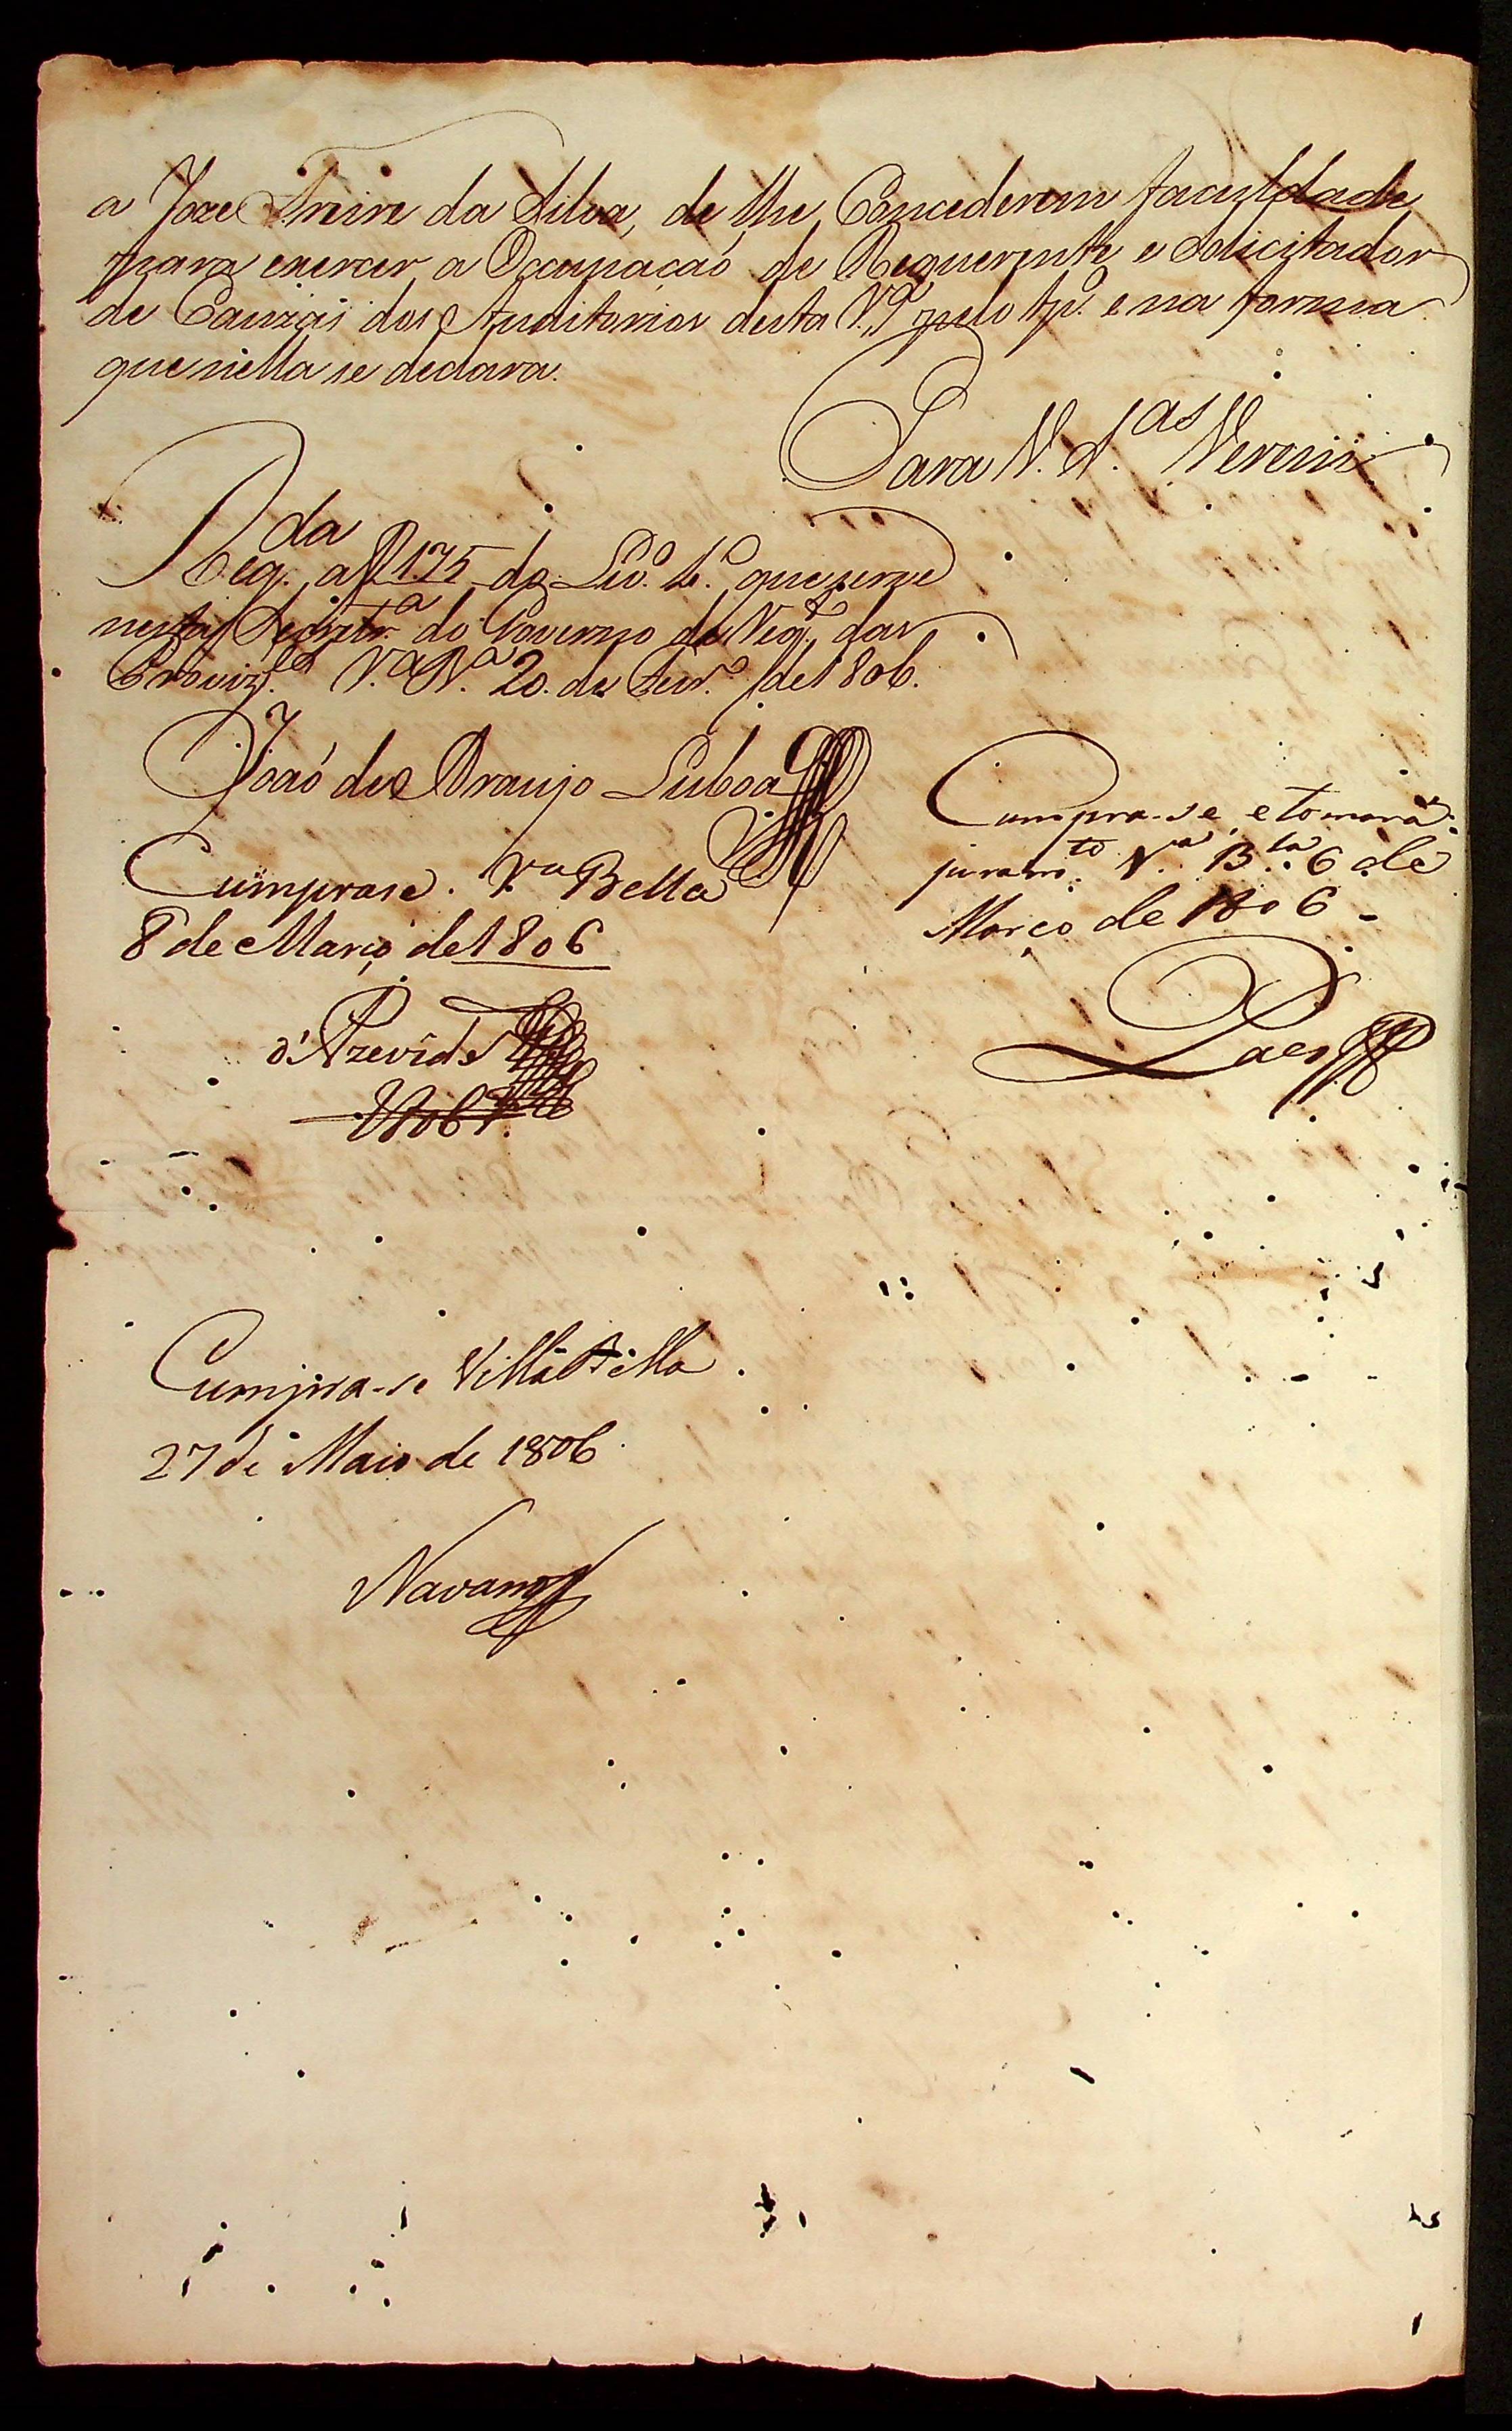 a Joze Freire da Silva, de lhe Concederem faculdade
para exercer a Occupaçaõ de Requerente e Solicitador
de Cauzas dos Auditorios desta V.ª pelo tp.º e na forma
que n'ella se declara.
Para V. S.as Verem
Reg.da a f 175 do Liv.º 1.º que serve
nesta Secretr.ª do Governo de Reg.º das
Proviz.es V.ª B.ª 20 de Fevr.º de 1806.
Joaõ de Araujo Lisboa
Cumprase. V.a Bella
8 de Março de 1806
d'Azevêdo
Cumpra-se, e tomará
juram.to V.a B.la 6 de
Março de 1806
Paes
Cumpra-se Villa Bella
27 de Maio de 1806
Navarro